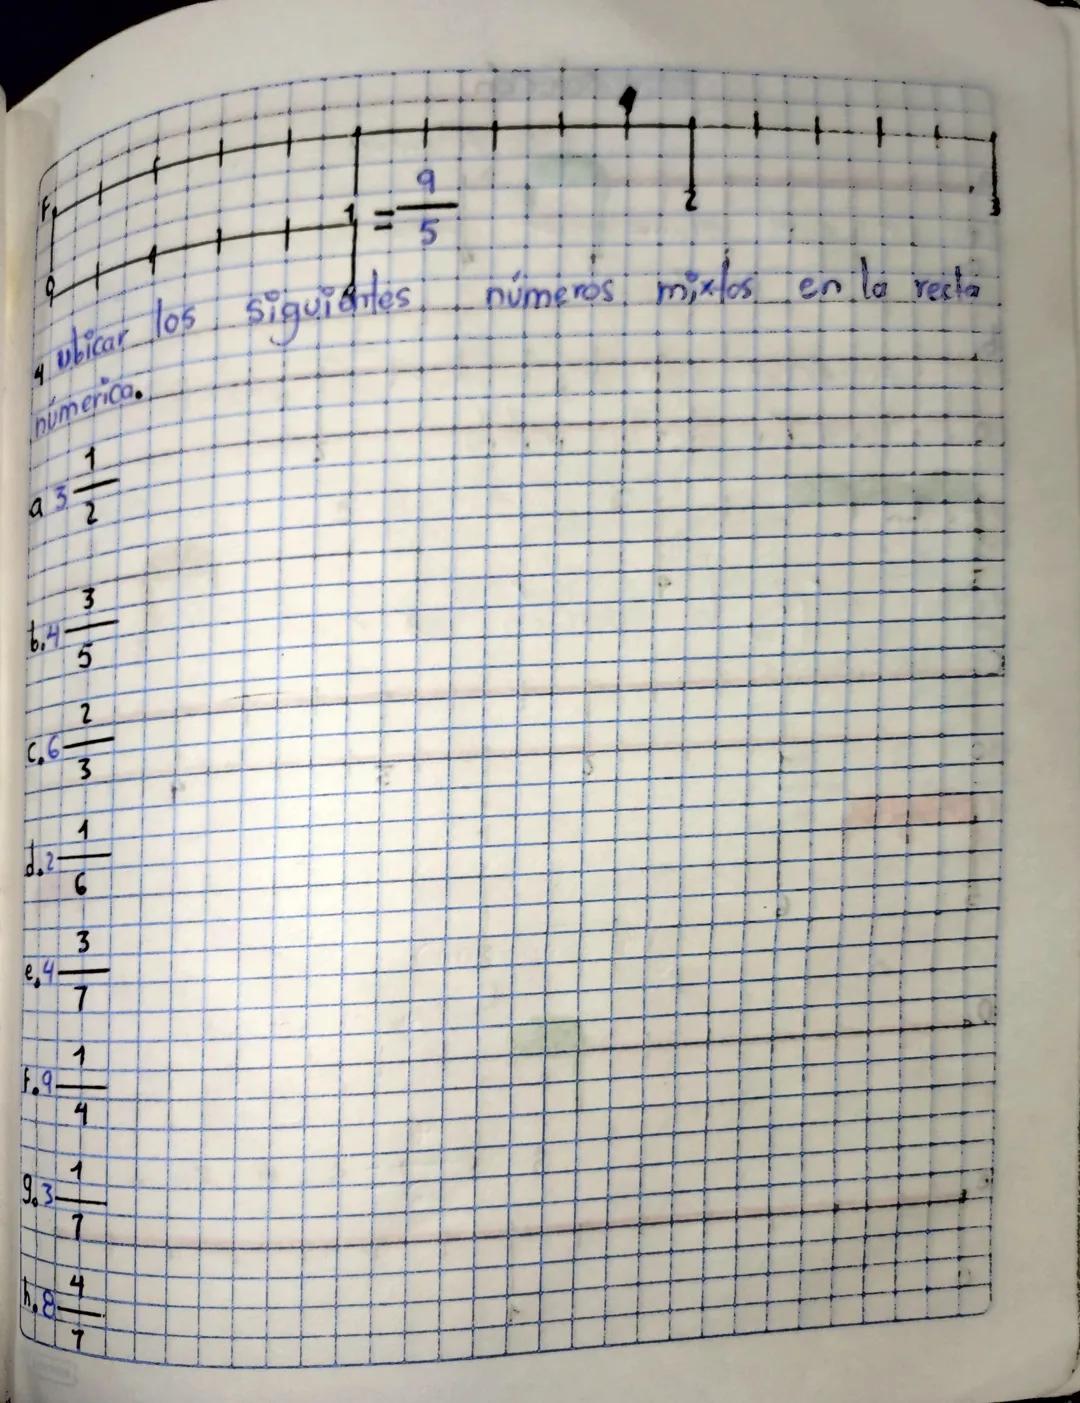 F.
2
3
0
1 = 9/5
4 ubicar los siguientes números mixtos en la recta
númerica.
a 3 1/2
b. 4 3/5
c. 6 2/3
d. 2 1/6
e. 4 3/7
f. 9 1/4
g. 3 1/7
h. 8 4/7